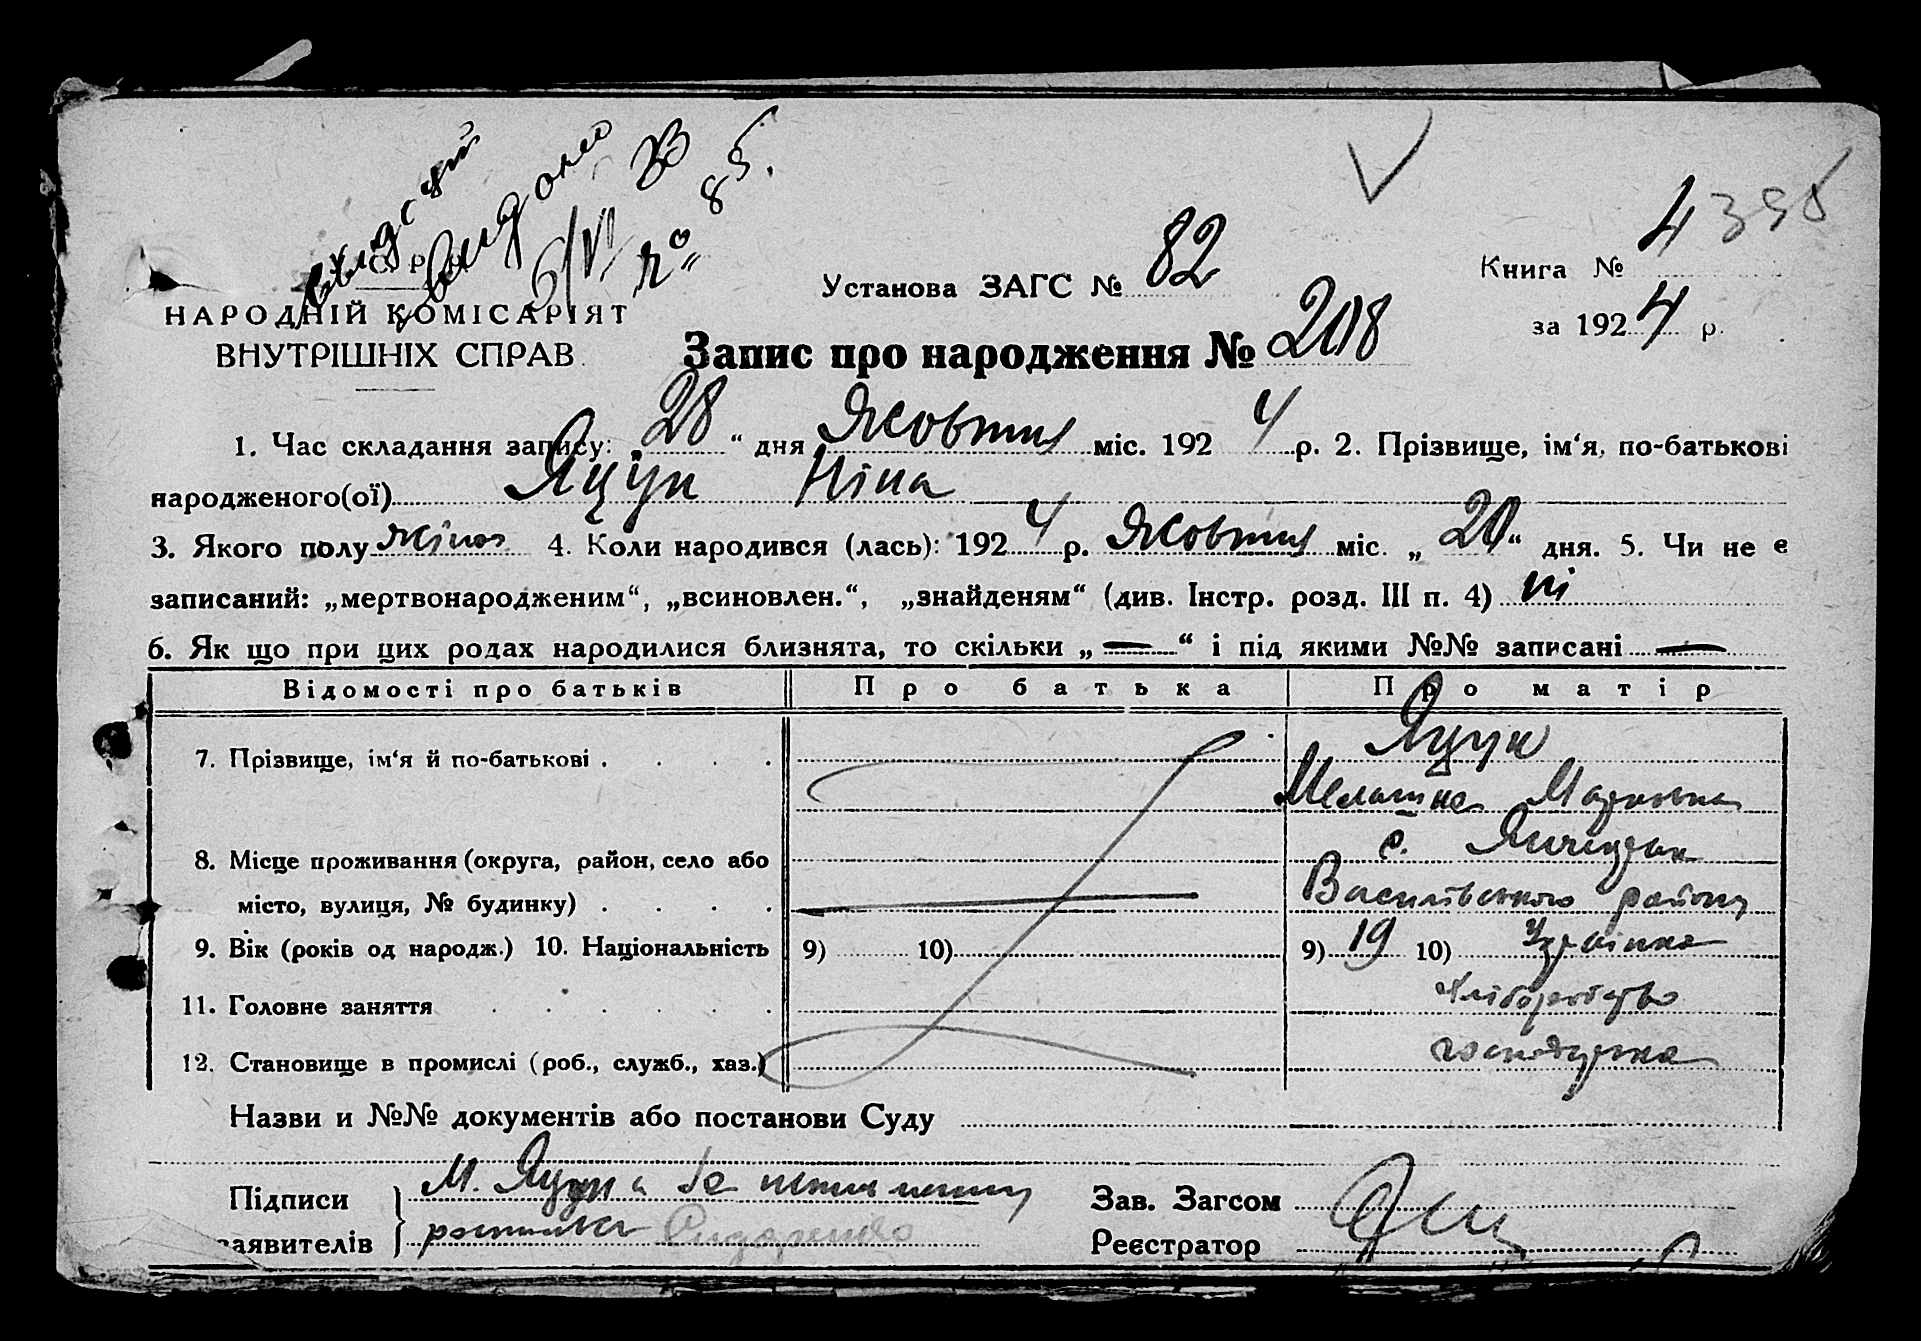 Видсил
видоме
5/VI 1г. 85.
У.С.Р.Р.
НАРОДНІЙ КОМІСАРІЯТ
ВНУТРІШНІХ СПРАВ
Установа ЗАГС № 82
Книга № 4 395
за 1924 р.
Запис про народження № 208
1. Час складання запису: „28“ дня Жовтня міс. 1924 р. 2. Прізвище, ім‘я, по-батькові
народженого(ої) Яцун Ніна
3. Якого полу жіноч 4. Коли народився (лась): 1924 р. Жовтня міс. „20“ дня. 5. Чи не є
записаний: „мертвонародженим“, „всиновлен.“, „знайденям“ (див. Інстр. розд. III п. 4) ні
6. Як що при цих родах народилися близнята, то скільки „—“ і під якими №№ записані —
Відомості про батьків Про батька Про матір
7. Прізвище, ім‘я й по-батькові . . . . Яцун
Мелашка Марковна
8. Місце проживання (округа, район, село або с. Янчицрак
місто, вулиця, № будинку) . . . . Василівського району
9. Вік (років од народж.) 10. Національність 9) 10) 9) 19 10) Українка
11. Головне заняття . . . . . . хліборобство
12. Становище в промислі (роб., служб., хаз.) господарка
Назви и №№ документів або постанови Суду
Підписи М. Яцун а за неписьменну
заявителів
Зав. Загсом
Реєстратор